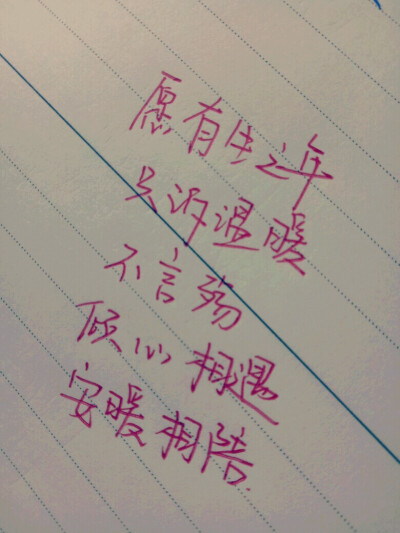 愿有生之年
只诉温暖
不言殇
倾心相遇
安暖相陪